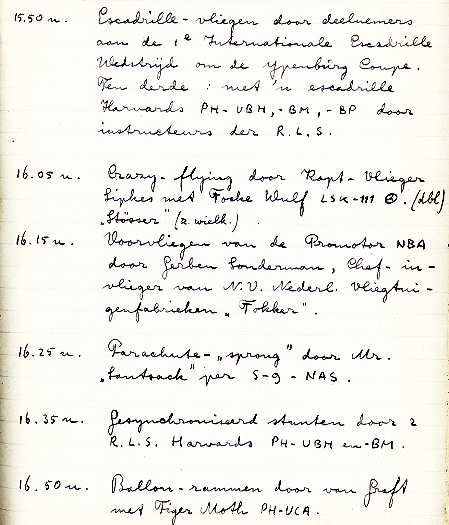 15.50 u. Escadrille-vliegen door deelnemers
aan de 1e Internationale Escadrille
Wedstrijd om de Ypenburg Coupe.
Ten derde: met 'n escadrille
Harvards PH-UBH, -BM, -BP door
instructeurs der R.L.S.
16.05 u. Crazy-flying door Kapt-vlieger
Sipkes met Focke Wulf LSK-111 . (dbl)
"Stösser" (z. wielk.)
16.15 u. Voorvliegen van de Promotor NBA
door Gerben Sonderman, Chef-in-
vlieger van N.V. Nederl. Vliegtui-
genfabrieken „Fokker".
16.25 u. Parachute-„sprong" door Mr.
per S-9-NAS.
16.35 u. Gesynchroniseerd stunten door 2
R.L.S. Harvards PH-UBH en -BM.
16.50 u. Ballon-rammen door van Greft
met Tiger Moth PH-UCA.